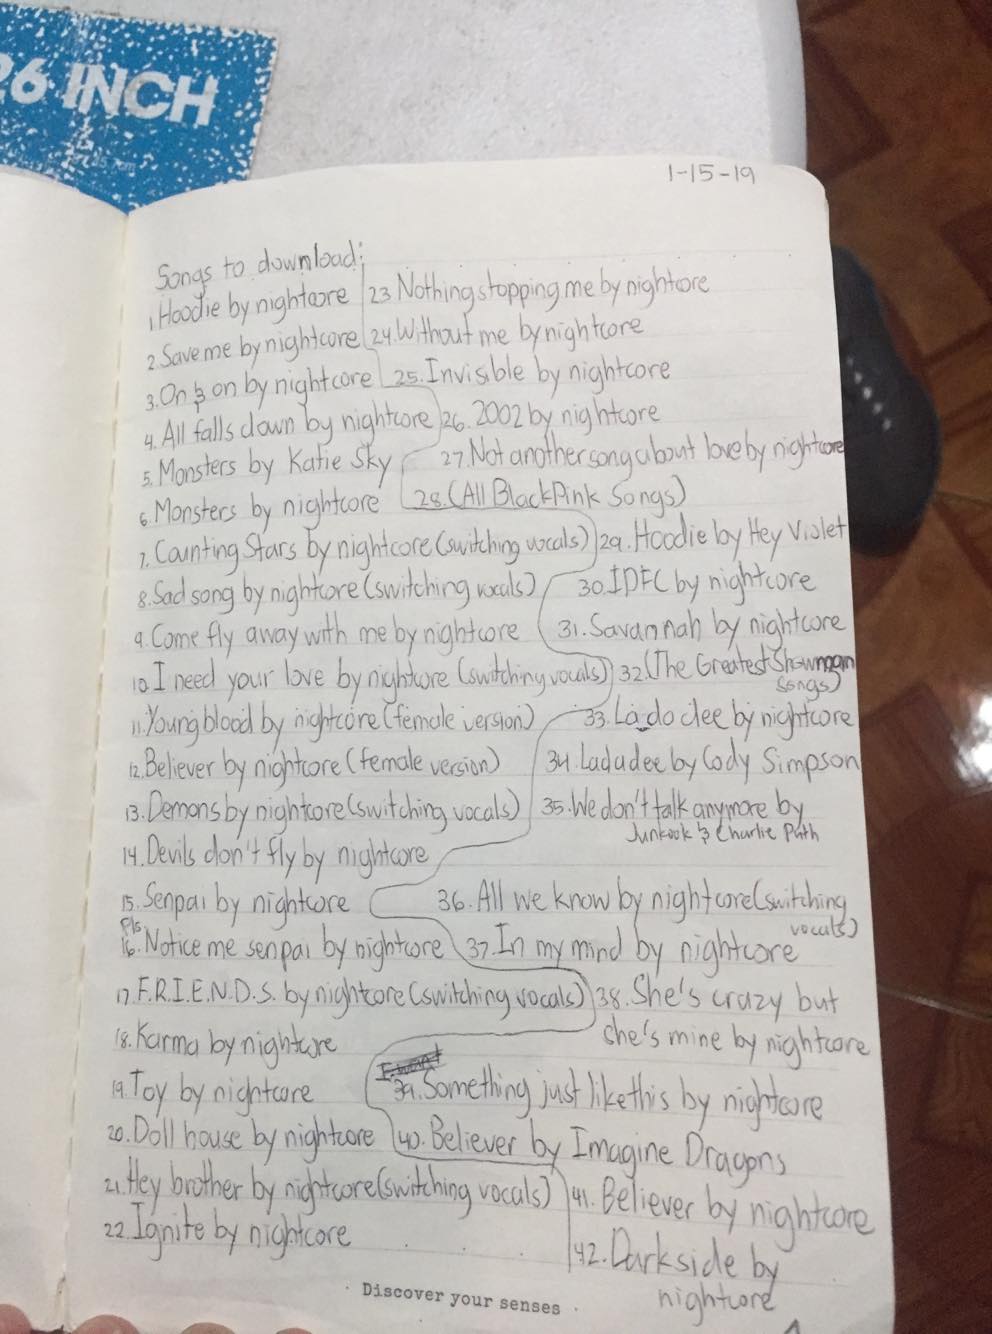 26 INCH
1-15-19
Songs to download:
1. Hoodie by nightcore
2. Save me by nightcore
3. On & on by nightcore
4. All falls down by nightcore
5. Monsters by Katie Sky
6. Monsters by nightcore
7. Counting Stars by nightcore (switching vocals)
8. Sad song by nightcore (switching vocals)
9. Come fly away with me by nightcore
10. I need your love by nightcore (switching vocals)
11. Youngblood by nightcore (female version)
12. Believer by nightcore (female version)
13. Demons by nightcore (switching vocals)
14. Devils don't fly by nightcore
15. Senpai by nightcore
Pls
16. Notice me senpai by nightcore
17. F.R.I.E.N.D.S. by nightcore (switching vocals)
18. Karma by nightcore
19. Toy by nightcore
20. Doll house by nightcore
21. Hey brother by nightcore (switching vocals)
22. Ignite by nightcore
23 Nothing stopping me by nightcore
24. Without me by nightcore
25. Invisible by nightcore
26. 2002 by nightcore
27. Not another song about love by nightcore
28. (All BlackPink Songs)
29. Hoodie by Hey Violet
30. IDFC by nightcore
31. Savannah by nightcore
32. (The Greatest Showman
Songs)
33. La do dee by nightcore
34. Ladadee by Cody Simpson
35. We don't talk anymore by
Junkook & Charlie Puth
36. All we know by nightcore (switching
vocals)
37. In my mind by nightcore
38. She's crazy but
she's mine by nightcore
39. Something just like this by nightcore
40. Believer by Imagine Dragons
41. Believer by nightcore
42. Darkside by
nightcore
· Discover your senses ·